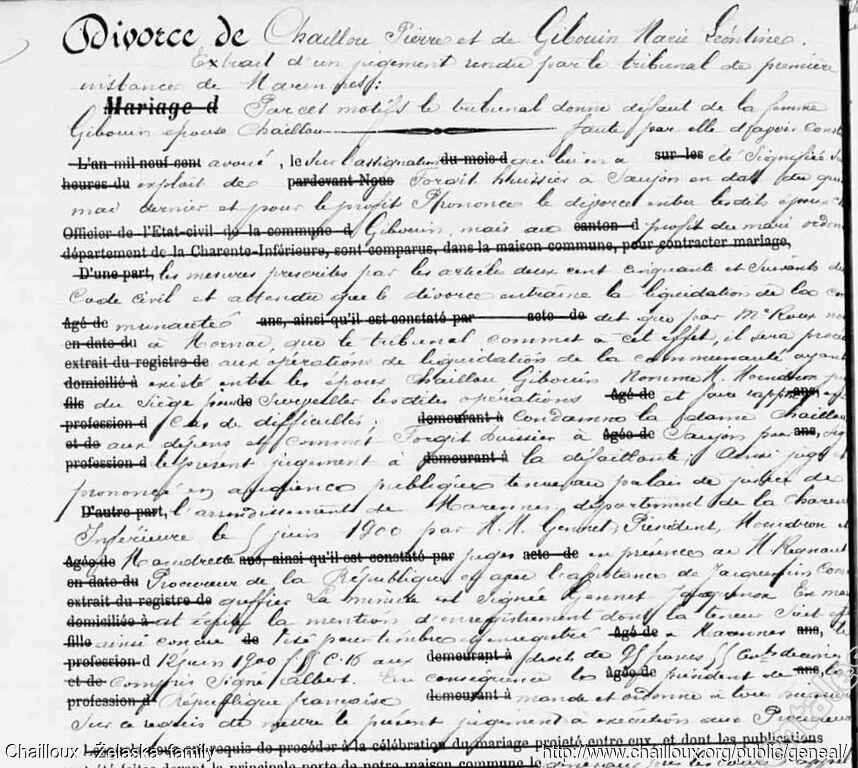 Divorce de Chaillou Pierre et de Gibouin Marie Léontine.
Extrait d'un jugement rendu par le tribunal de première
instance de Marennes:
Mariage d Par ces motifs le tribunal donne défaut de la femme
Gibouin épouse Chaillou faute par elle d'avoir const
L'an mil neuf cent avoué, le sur l'assignation du mois d qui lui en a sur les été signifiée
heures du exploit de pardevant Nous Forgit huissier à Saujon en date du
mai dernier et pour le profit Prononce le divorce entre les dits époux
Officier de l'Etat-civil de la commune d Gibouin, mais au canton d profit du mari ordon
département de la Charente-Inférieure, sont comparus, dans la maison commune, pour contracter mariage,
D'une part, les mesures prescrites par les articles deux cent cinquante et suivants du
Code civil et attendu que le divorce entraîne la liquidation de la com
âgé de munauté ans, ainsi qu'il est constaté par acte de dit que par Me Roux no
en date du à que le tribunal commet à cet effet, il sera procé
extrait du registre de aux opérations de liquidation de la communauté ayant
domicilié à existé entre les époux Chaillou Gibouin Nomme M.
fils du Siège pour de surveiller les dites opérations âgé de et faire rapport ans, en
profession d cas de difficultés; demeurant à Condamne la dame Chaillou
et de aux dépens et commet Forgit huissier à âgée de Saujon pour ans,
profession d le présent jugement à demeurant à la défaillante. Ainsi jugé et
prononcé en audience publique tenue au palais de justice de
D'autre part, l'arrondissement de Marennes, département de la Charente
Inférieure le 5 juin 1900 par M.M. Gennet, Président, et
Agée de ans, ainsi qu'il est constaté par juges acte de en présence de M. Regnaut
en date du Procureur de la République et avec l'assistance de Jacquemin com
extrait du registre de greffier La minute est signée Gennet En mar
domiciliée à est écrite la mention d'enregistrement dont la teneur suit
fille ainsi conçue de Visé pour timbre et enregistré âgé de à Marennes ans, le
profession d 12 juin 1900 aux demeurant à droits de francs
et de compris Signé Albert. En conséquence le âgée de président de ans, la
profession d République française demeurant à mande et ordonne à tous
sur ce requis de mettre le présent jugement à exécution aux Procureurs
requis de procéder à la célébration du mariage projeté entre eux, et dont les publications
été faites devant la principale porte de notre maison commune le
Chailloux - Zelaska family
http://www.chailloux.org/public/geneal/